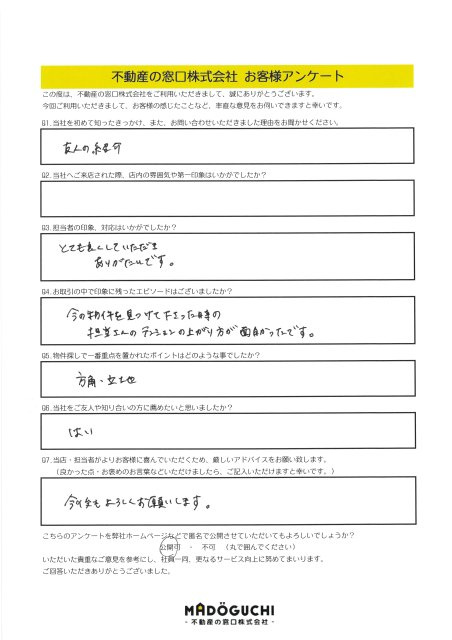 不動産の窓口株式会社 お客様アンケート
この度は、不動産の窓口株式会社をご利用いただきまして、誠にありがとうございます。
今回ご利用いただきまして、お客様の感じたことなど、率直な意見をお伺いできますと幸いです。
Q1.当社を初めて知ったきっかけ、また、お問い合わせいただきました理由をお聞かせください。
友人の紹介
Q2.当社へご来店された際、店内の雰囲気や第一印象はいかがでしたか？
Q3.担当者の印象、対応はいかがでしたか？
とても良くしていただき
ありがたいです。
Q4.お取引の中で印象に残ったエピソードはございましたか？
今の物件を見つけて下さった時の
担当さんのテンションの上がり方が面白かったです。
Q5.物件探しで一番重点を置かれたポイントはどのような事でしたか？
方角・立地
Q6.当社をご友人や知り合いの方に薦めたいと思いましたか？
はい
Q7.当店・担当者がよりお客様に喜んでいただくため、厳しいアドバイスをお願い致します。
（良かった点・お褒めのお言葉などいただけましたら、ご記入いただけますと幸いです。）
今後もよろしくお願いします。
こちらのアンケートを弊社ホームページなどで匿名で公開させていただいてもよろしいでしょうか？
公開可 ・ 不可 （丸で囲んでください）
いただいた貴重なご意見を参考にし、社員一同、更なるサービス向上に努めてまいります。
ご回答いただきありがとうございました。
MADOGUCHI
- 不動産の窓口株式会社 -